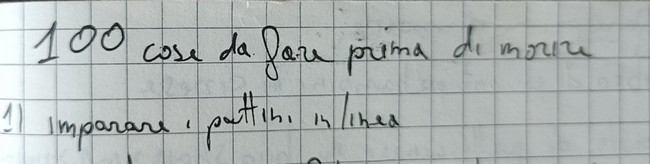 100 cose da fare prima di morire
1) imparare i pattini in linea